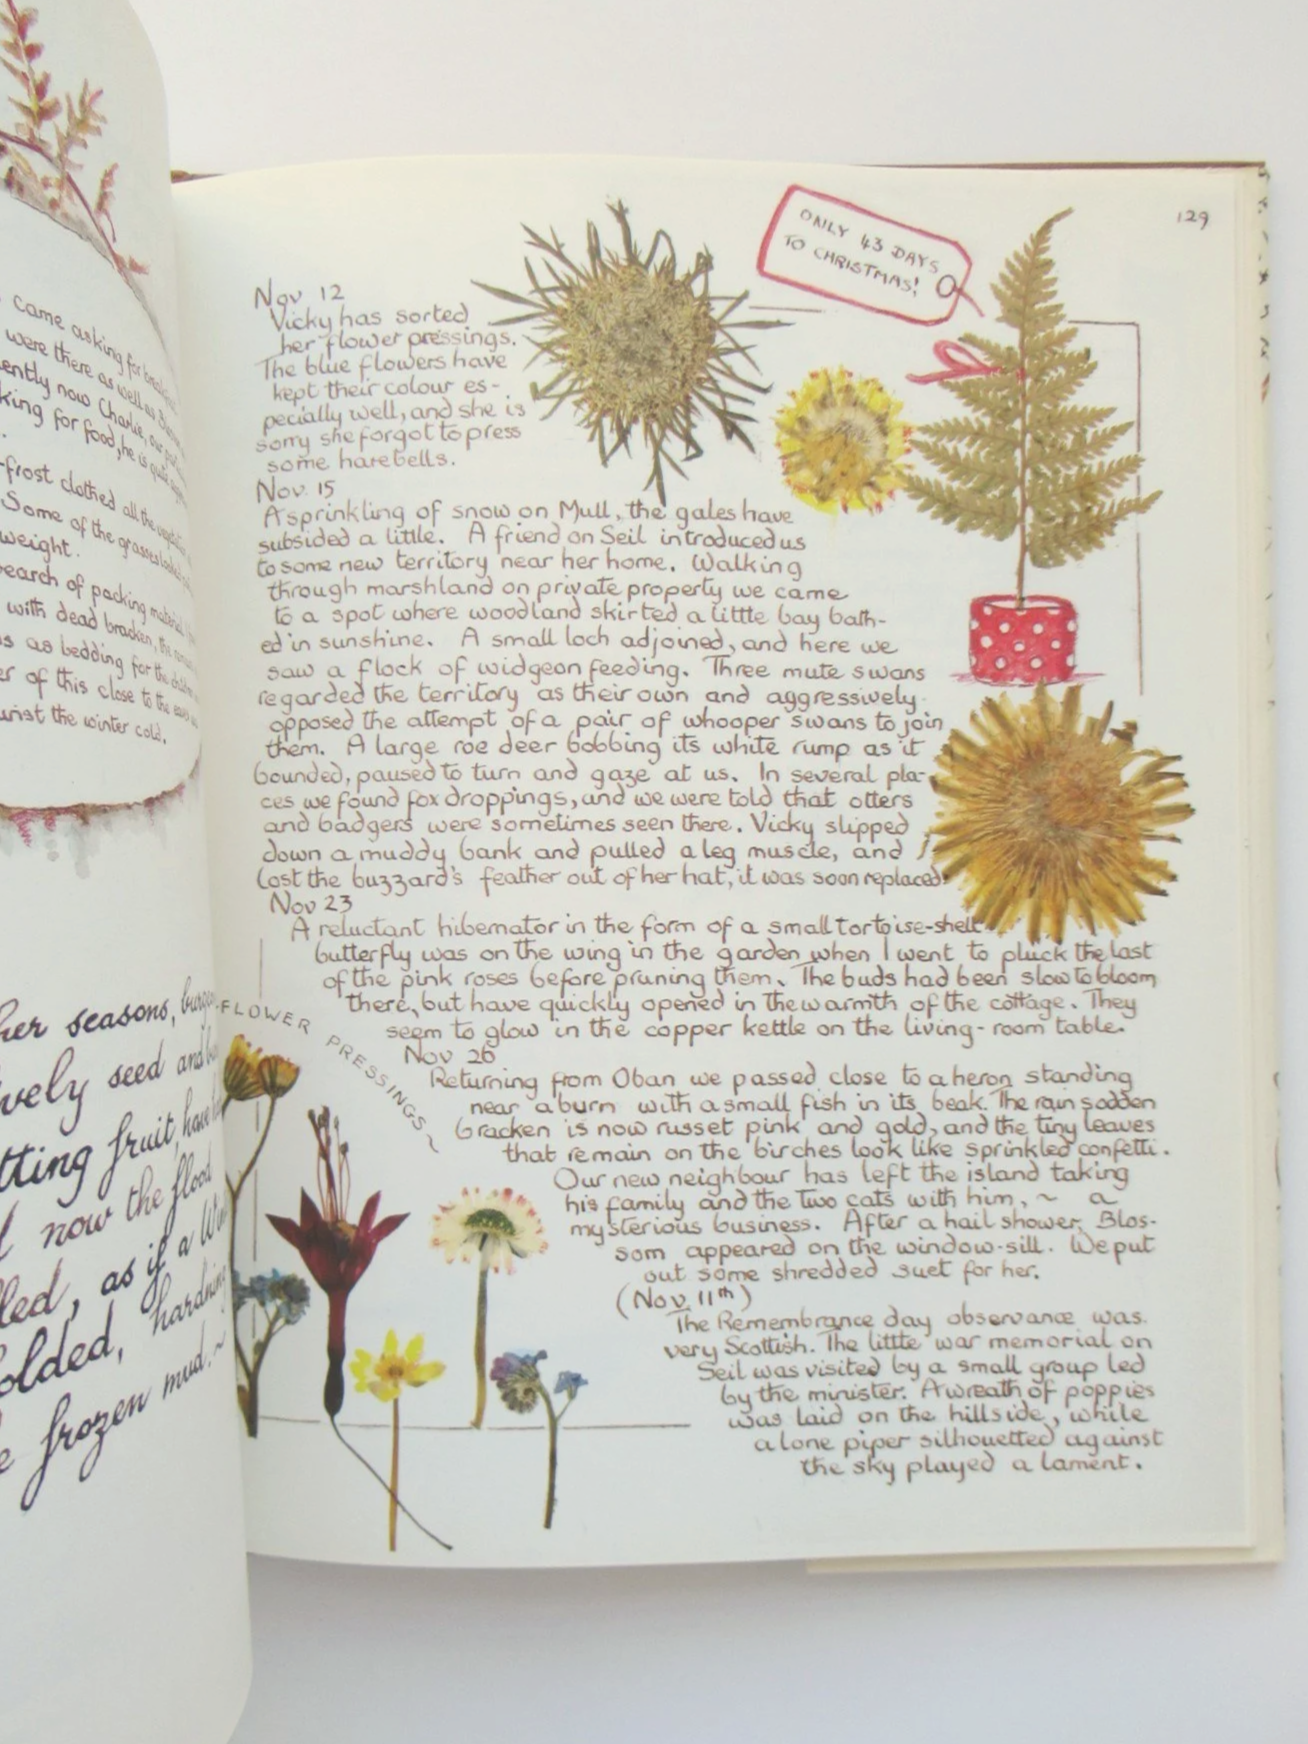 came asking for
were there as well as
ently now Charlie, our
king for food, he is quite
-frost clothed all the
Some of the grasses
weight.
search of packing
with dead bracken, the
as bedding for the
er of this close to the
the winter cold.
her seasons,
vely seed and
tting fruit, have
now the flood
led, as if a
olded, hardning
frozen mud. ~
129
ONLY 43 DAYS
TO CHRISTMAS!
Nov 12
Vicky has sorted
her flower pressings.
The blue flowers have
kept their colour es-
pecially well, and she is
sorry she forgot to press
some harebells.
Nov. 15
A sprinkling of snow on Mull, the gales have
subsided a little. A friend on Seil introduced us
to some new territory near her home. Walking
through marshland on private property we came
to a spot where woodland skirted a little bay bath-
ed in sunshine. A small loch adjoined, and here we
saw a flock of widgeon feeding. Three mute swans
regarded the territory as their own and aggressively
opposed the attempt of a pair of whooper swans to join
them. A large roe deer bobbing its white rump as it
bounded, paused to turn and gaze at us. In several pla-
ces we found fox droppings, and we were told that otters
and badgers were sometimes seen there. Vicky slipped
down a muddy bank and pulled a leg muscle, and
lost the buzzard's feather out of her hat, it was soon replaced.
Nov 23
A reluctant hibernator in the form of a small tortoise-shell
butterfly was on the wing in the garden when I went to pluck the last
of the pink roses before pruning them. The buds had been slow to bloom
there, but have quickly opened in the warmth of the cottage. They
seem to glow in the copper kettle on the living-room table.
FLOWER PRESSINGS ~
Nov 26
Returning from Oban we passed close to a heron standing
near a burn with a small fish in its beak. The rain sodden
bracken is now russet pink and gold, and the tiny leaves
that remain on the birches look like sprinkled confetti.
Our new neighbour has left the island taking
his family and the two cats with him, ~ a
mysterious business. After a hail shower, Blos-
som appeared on the window-sill. We put
out some shredded suet for her.
(Nov 11th)
The Remembrance day observance was
very Scottish. The little war memorial on
Seil was visited by a small group led
by the minister. A wreath of poppies
was laid on the hillside, while
a lone piper silhouetted against
the sky played a lament.